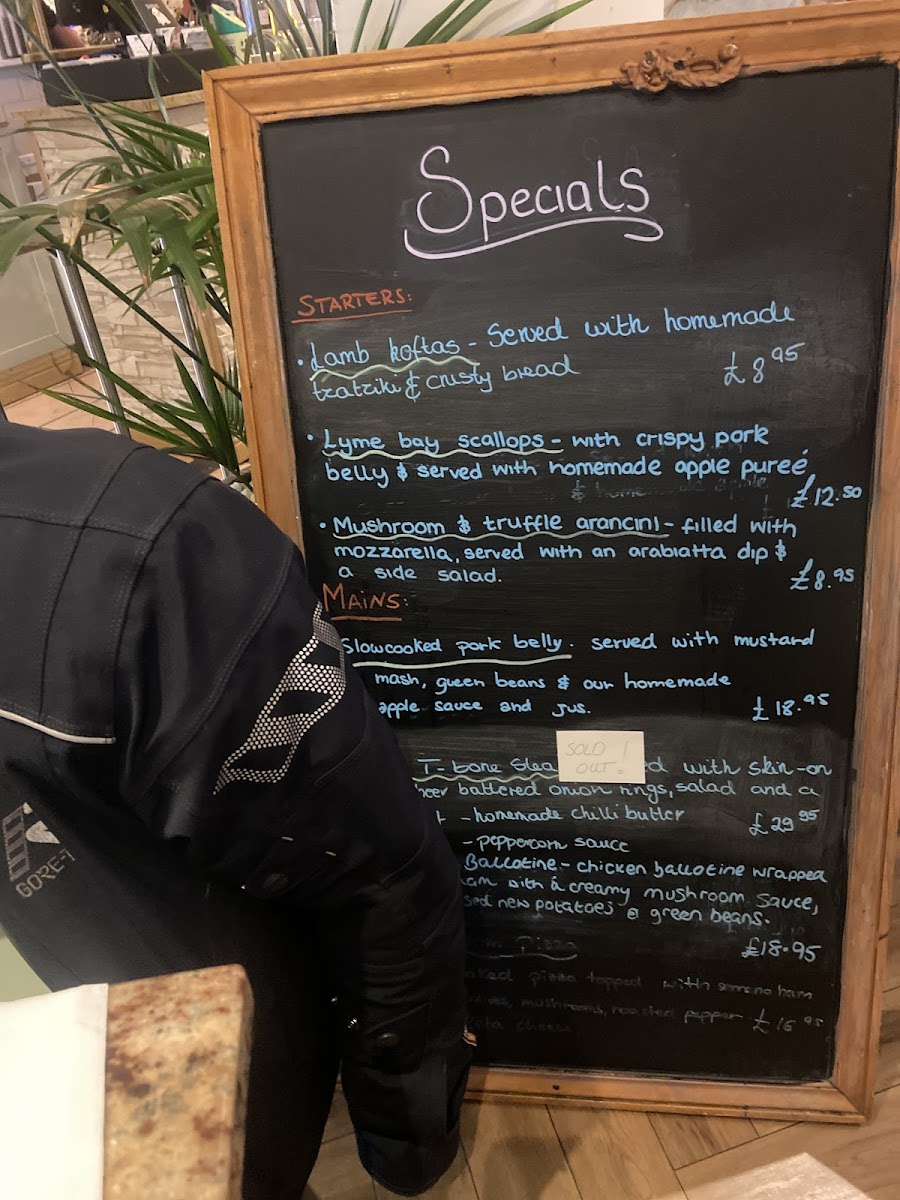 Specials
STARTERS:
• Lamb koftas - Served with homemade
tzatziki & crusty bread £8.95
• Lyme bay scallops - with crispy pork
belly & served with homemade apple pureé
£12.50
• Mushroom & truffle arancini - filled with
mozzarella, served with an arabiatta dip &
a side salad. £8.95
MAINS:
Slowcooked pork belly. served with mustard
mash, green beans & our homemade
apple sauce and jus. £18.95
SOLD
OUT!
T-bone with skin-on
beer battered onion rings, salad and a
- homemade chilli butter £29.95
- peppercorn sauce
Ballotine - chicken ballotine wrapped
with a creamy mushroom sauce,
new potatoes & green beans.
£18.95
Pizza
pizza topped with serrano ham
mushrooms, roasted pepper £16.95
cheese
GORE-T